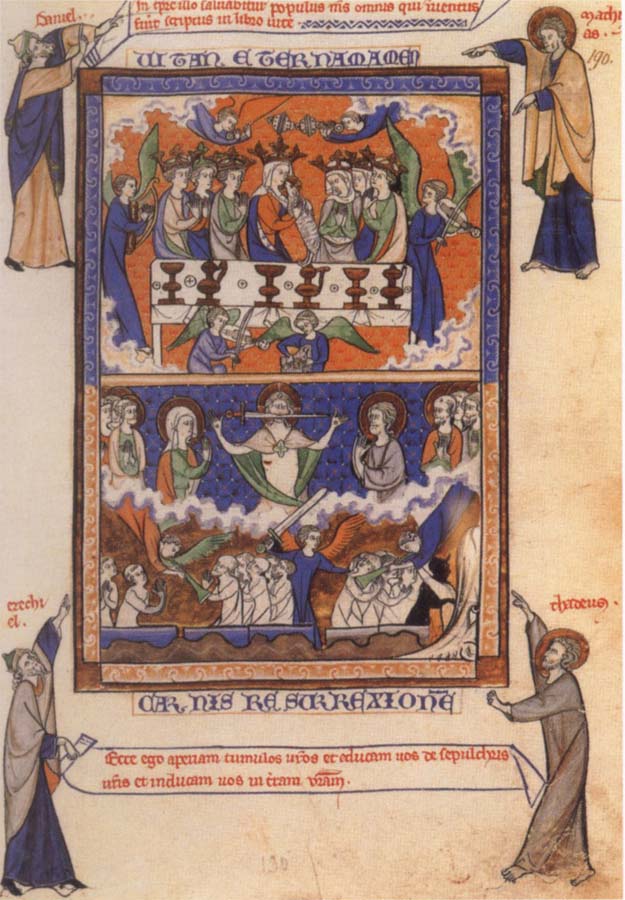 Daniel.
In tpe illo salvabitur populus tuus omnis qui inventus
fuit scriptus in libro vite
mathi
as.
190.
VITAN ETERNAM AMEN
ezechi
el.
thadeus.
CARNIS RESURREXIONE
Ecce ego aperiam tumulos vros et educam vos de sepulchris
vris et inducam vos in terram vram.
130